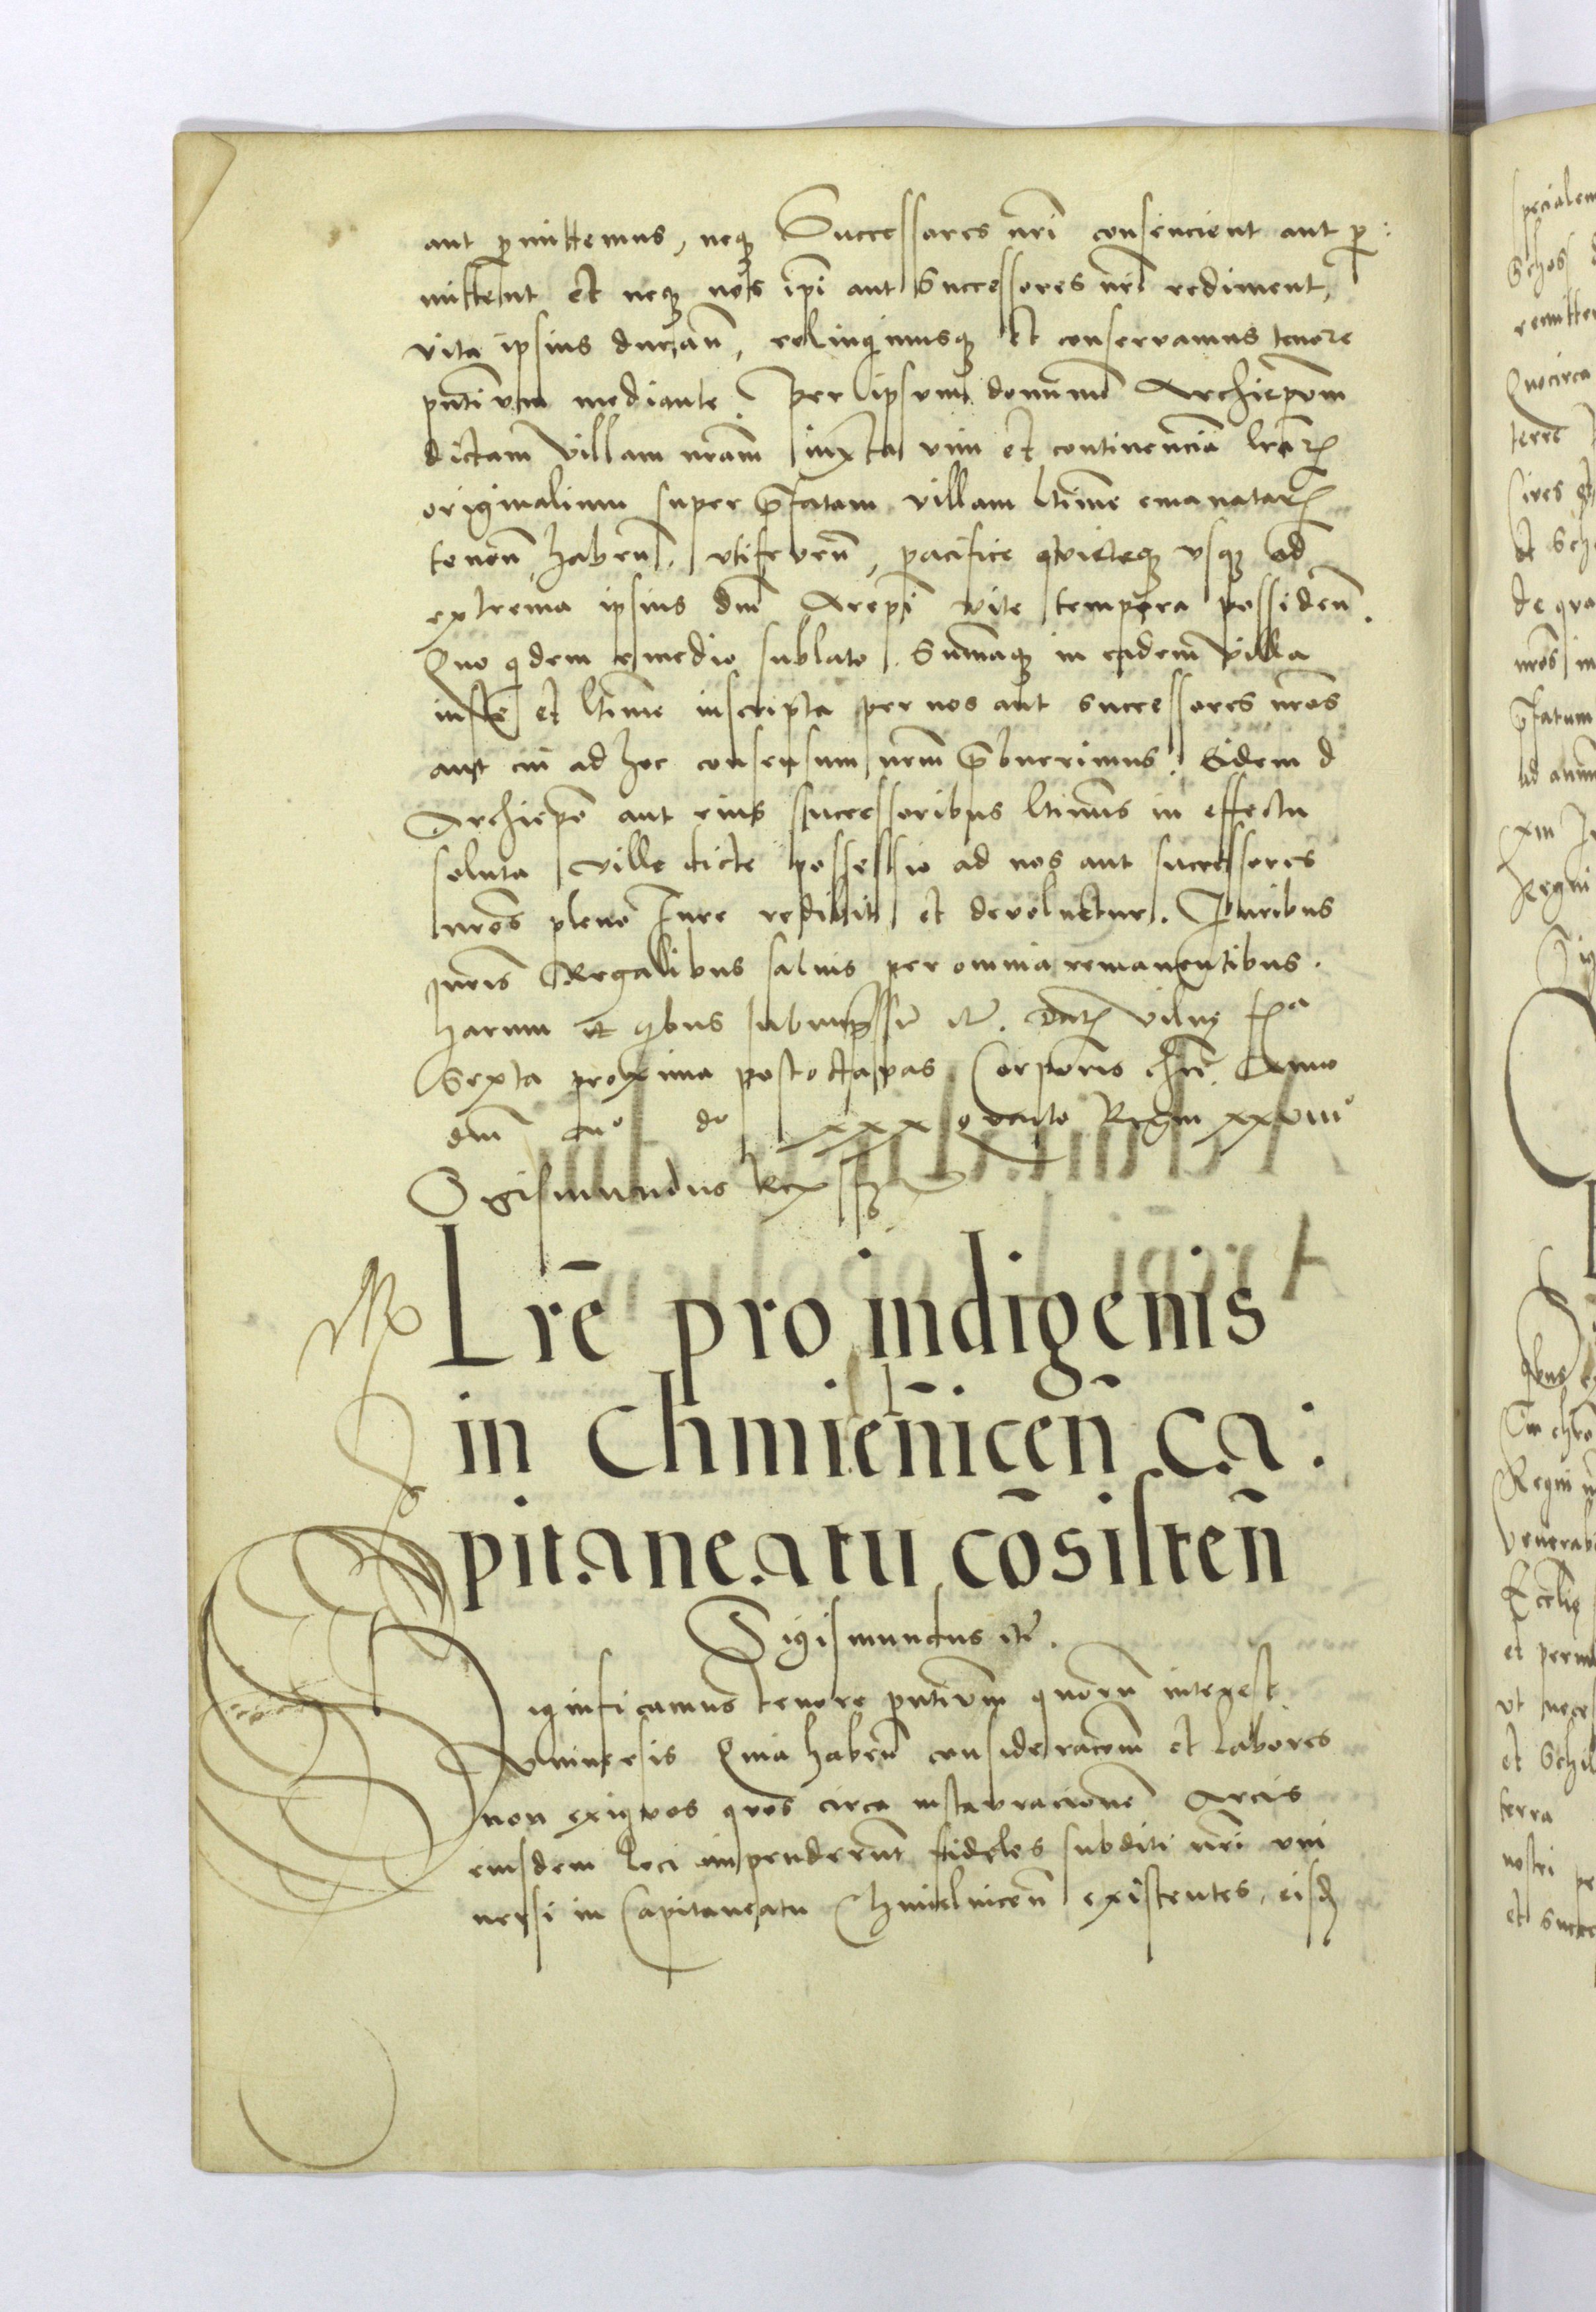 aut p̱mittemus, neqꝫ Successores nr̄i consencient aut p̱:
mittent et neqꝫ nos ip̄i aut Successores nr̄i rediment,
vita ipsius duran̄, relinqimusqꝫ et conservamus tenore
pn̄tivm mediante. Per ipsum dominum Archiep̄vm
dictam villam nr̄am iuxta vim et continencia lr̄arꝫ
originalium super p̄fatam villam l̄time emanatarꝫ
tenen̄, haben̄, vtifruen̄, pacifice quieteqꝫ vsqꝫ ad
extrema ipsius dn̄i Arcēpi vite tempora possiden̄.
Quo qdem e medio sublato. Summaqꝫ in eadem villa
iuste et l̄time inscripta per nos aut successores nr̄os
aut cui ad hoc consensum nr̄m p̄buerimus, Eidem d
Archiep̄o aut eius successoribus l̄timis in effectu
soluta ville dicte possessio ad nos aut successores
nr̄os pleno Iure redibit et devoluetur. Iuribus
nr̄is Regalibus saluis per omnia remanentibus.
Harum ꝛc qibus subimp̄ss ꝛc̄. Datꝫ vilnę fr̄a
Sexta proxima post octavas Corporis chr̄i Anno
dn̄i mo do xxx quarto Regni xxviii°
Sigismundus Rex ss
Lr̄e pro indigenis
in Chmieln̄icen̄ Ca:
pitaneatu cōsisten̄
Sigismundus ꝛc̄.
Significamus tenore pn̄tivm quorū interest
vniuersis Quia haben̄ consideracōem et labores
non exiguos quos circa instauracionē Arcis
eiusdem loci impenderunt fideles subditi nr̄i vni
versi in Capitaneatu Chmielnicen̄ existentes, eisd